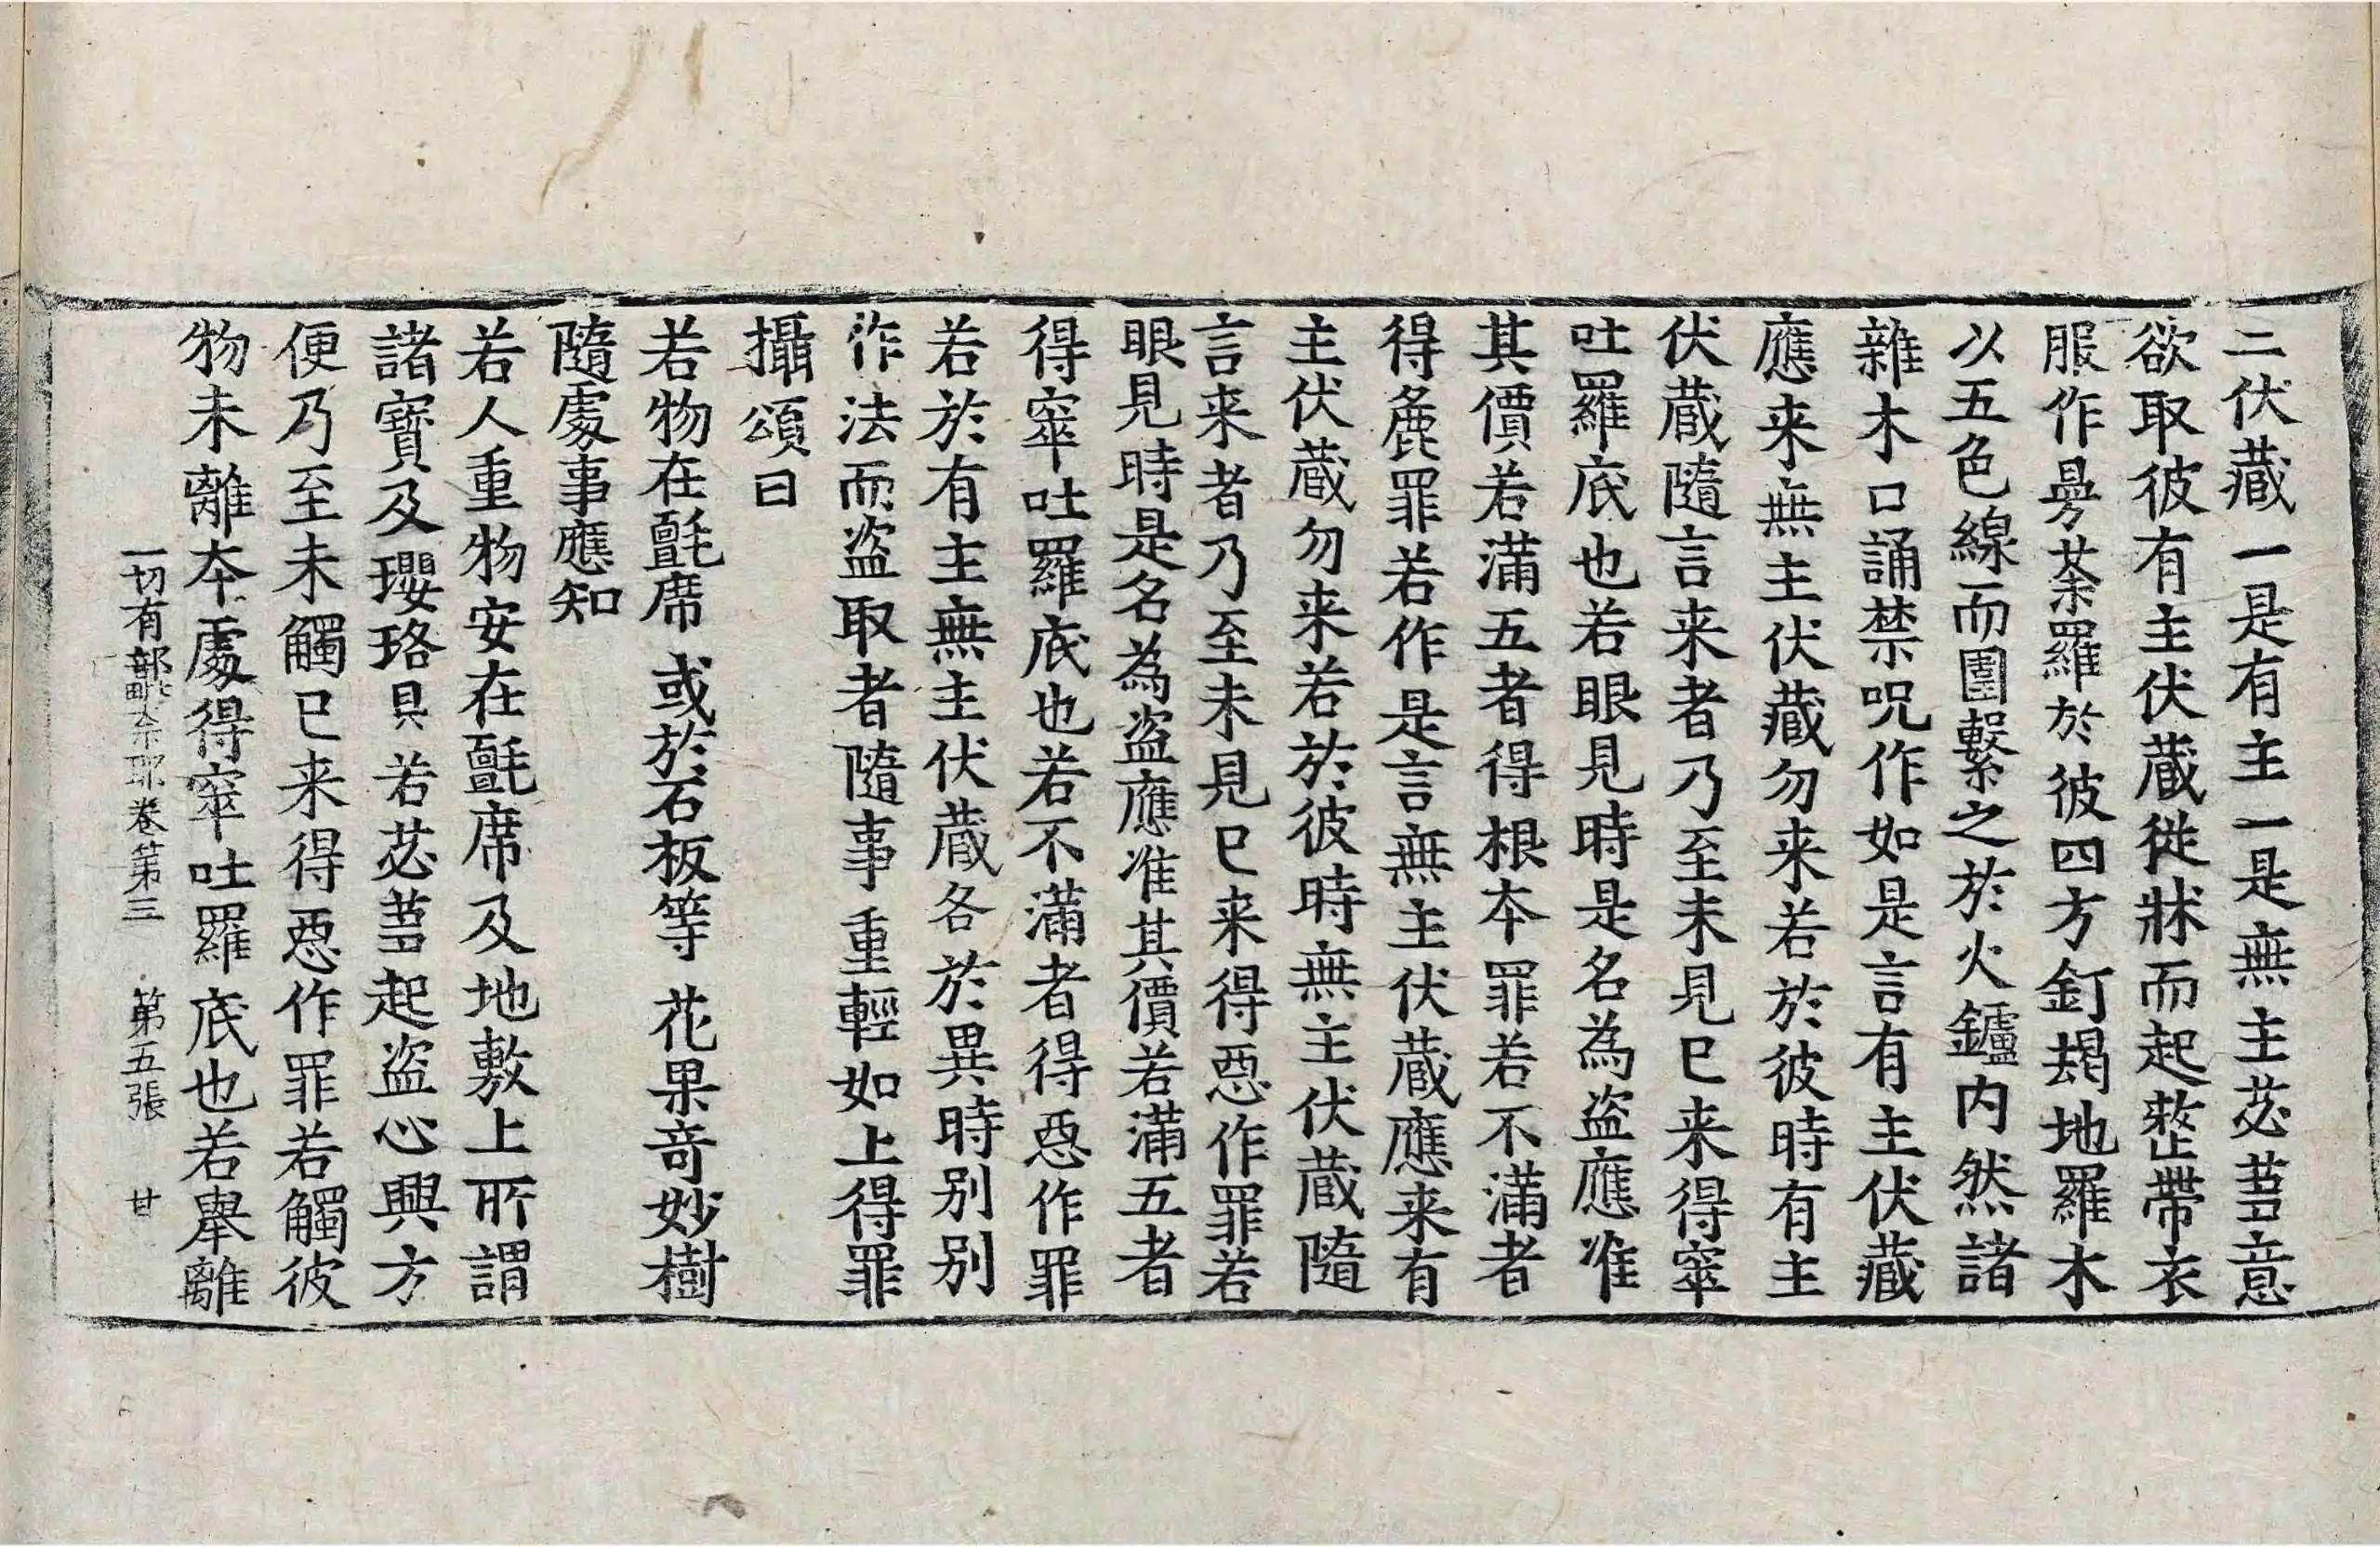 二伏藏一是有主一是無主苾芻意
欲取彼有主伏蔵從牀而起整帶衣
服作曼荼羅於彼四方釘朅地羅木
以五色線而圍繫之於火鑪内然諸
雜木口誦禁呪作如是言有主伏藏
應来無主伏藏勿来若於彼時有主
伏蔵隨言来者乃至未見已来得窣
吐羅底也若眼見時是名為盗應准
其價若滿五者得根本罪若不滿者
得麁罪若作是言無主伏蔵應来有
主伏蔵勿来若於彼時無主伏蔵隨
言来者乃至未見已来得惡作罪若
眼見時是名為盗應准其價若滿五者
得窣吐羅底也若不滿者得惡作罪
若於有主無主伏蔵各於異時別別
作法而盗取者隨事重輕如上得罪
攝頌曰
若物在氈席 或於石板等 花果竒妙樹
隨處事應知
若人重物安在氈席及地敷上所謂
諸寶及瓔珞具若苾芻起盗心興方
便乃至未觸已来得惡作罪若觸彼
物未離本處得窣吐羅底也若舉離
一切有部毗奈耶卷第三 第五張 甘